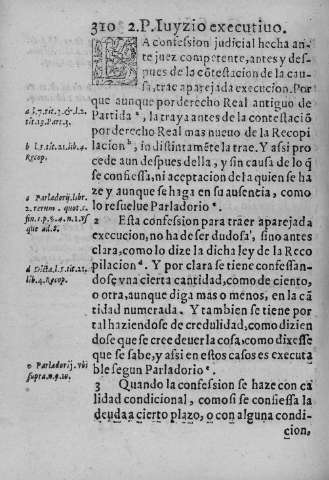 310 2.P. Iuyzio executiuo.
LA confession judicial hecha an-
te juez competente, antes y des-
pues de la cõtestacion de la cau-
sa, trae aparejada execucion. Por
que aunque por derecho Real antiguo de
Partida ª, la tray a antes de la contestaciõ
por derecho Real mas nueuo de la Recopi
lacion ᵇ, indistinta mẽte la trae. Y assi pro
cede aun despues della, y sin causa de lo q̃
se confiessa, ni aceptacion de la quien se ha
ze y aunque se haga en su ausencia, como
lo resuelue Parladorio ᶜ.
2 Esta confession para traer aparejada
execucion, no ha de ser dudosa, sino antes
clara, como lo dize la dicha ley de la Reco
pilacion ᵈ. Y por clara se tiene confessan-
dose vna cierta cantidad, como de ciento,
o otra, aunque diga mas o menos, en la cã
tidad numerada. Y tambien se tiene por
tal haziendose de credulidad, como dizien
do se que se cree deuer la cosa, como dixesse
que se sabe, y assi en estos casos es executa
ble segun Parladorio ᵉ.
3 Quando la confession se haze con ca
lidad condicional, como si se confiessa la
deuda a cierto plazo, o con alguna condi-
cion,
a l.7. tit.3. & l.2.
tit.13. Part.3.
b l.5. tit.21. lib.4
Recop.
c Parladorij. libr.
2. rerum. quot. c.
fin. 1. p. §.4. n.1. & s
que ad.8.
d Dicta.l.5. tit.21.
lib.4. Recop.
e Parladorij. vbi
supra. n.9.10.